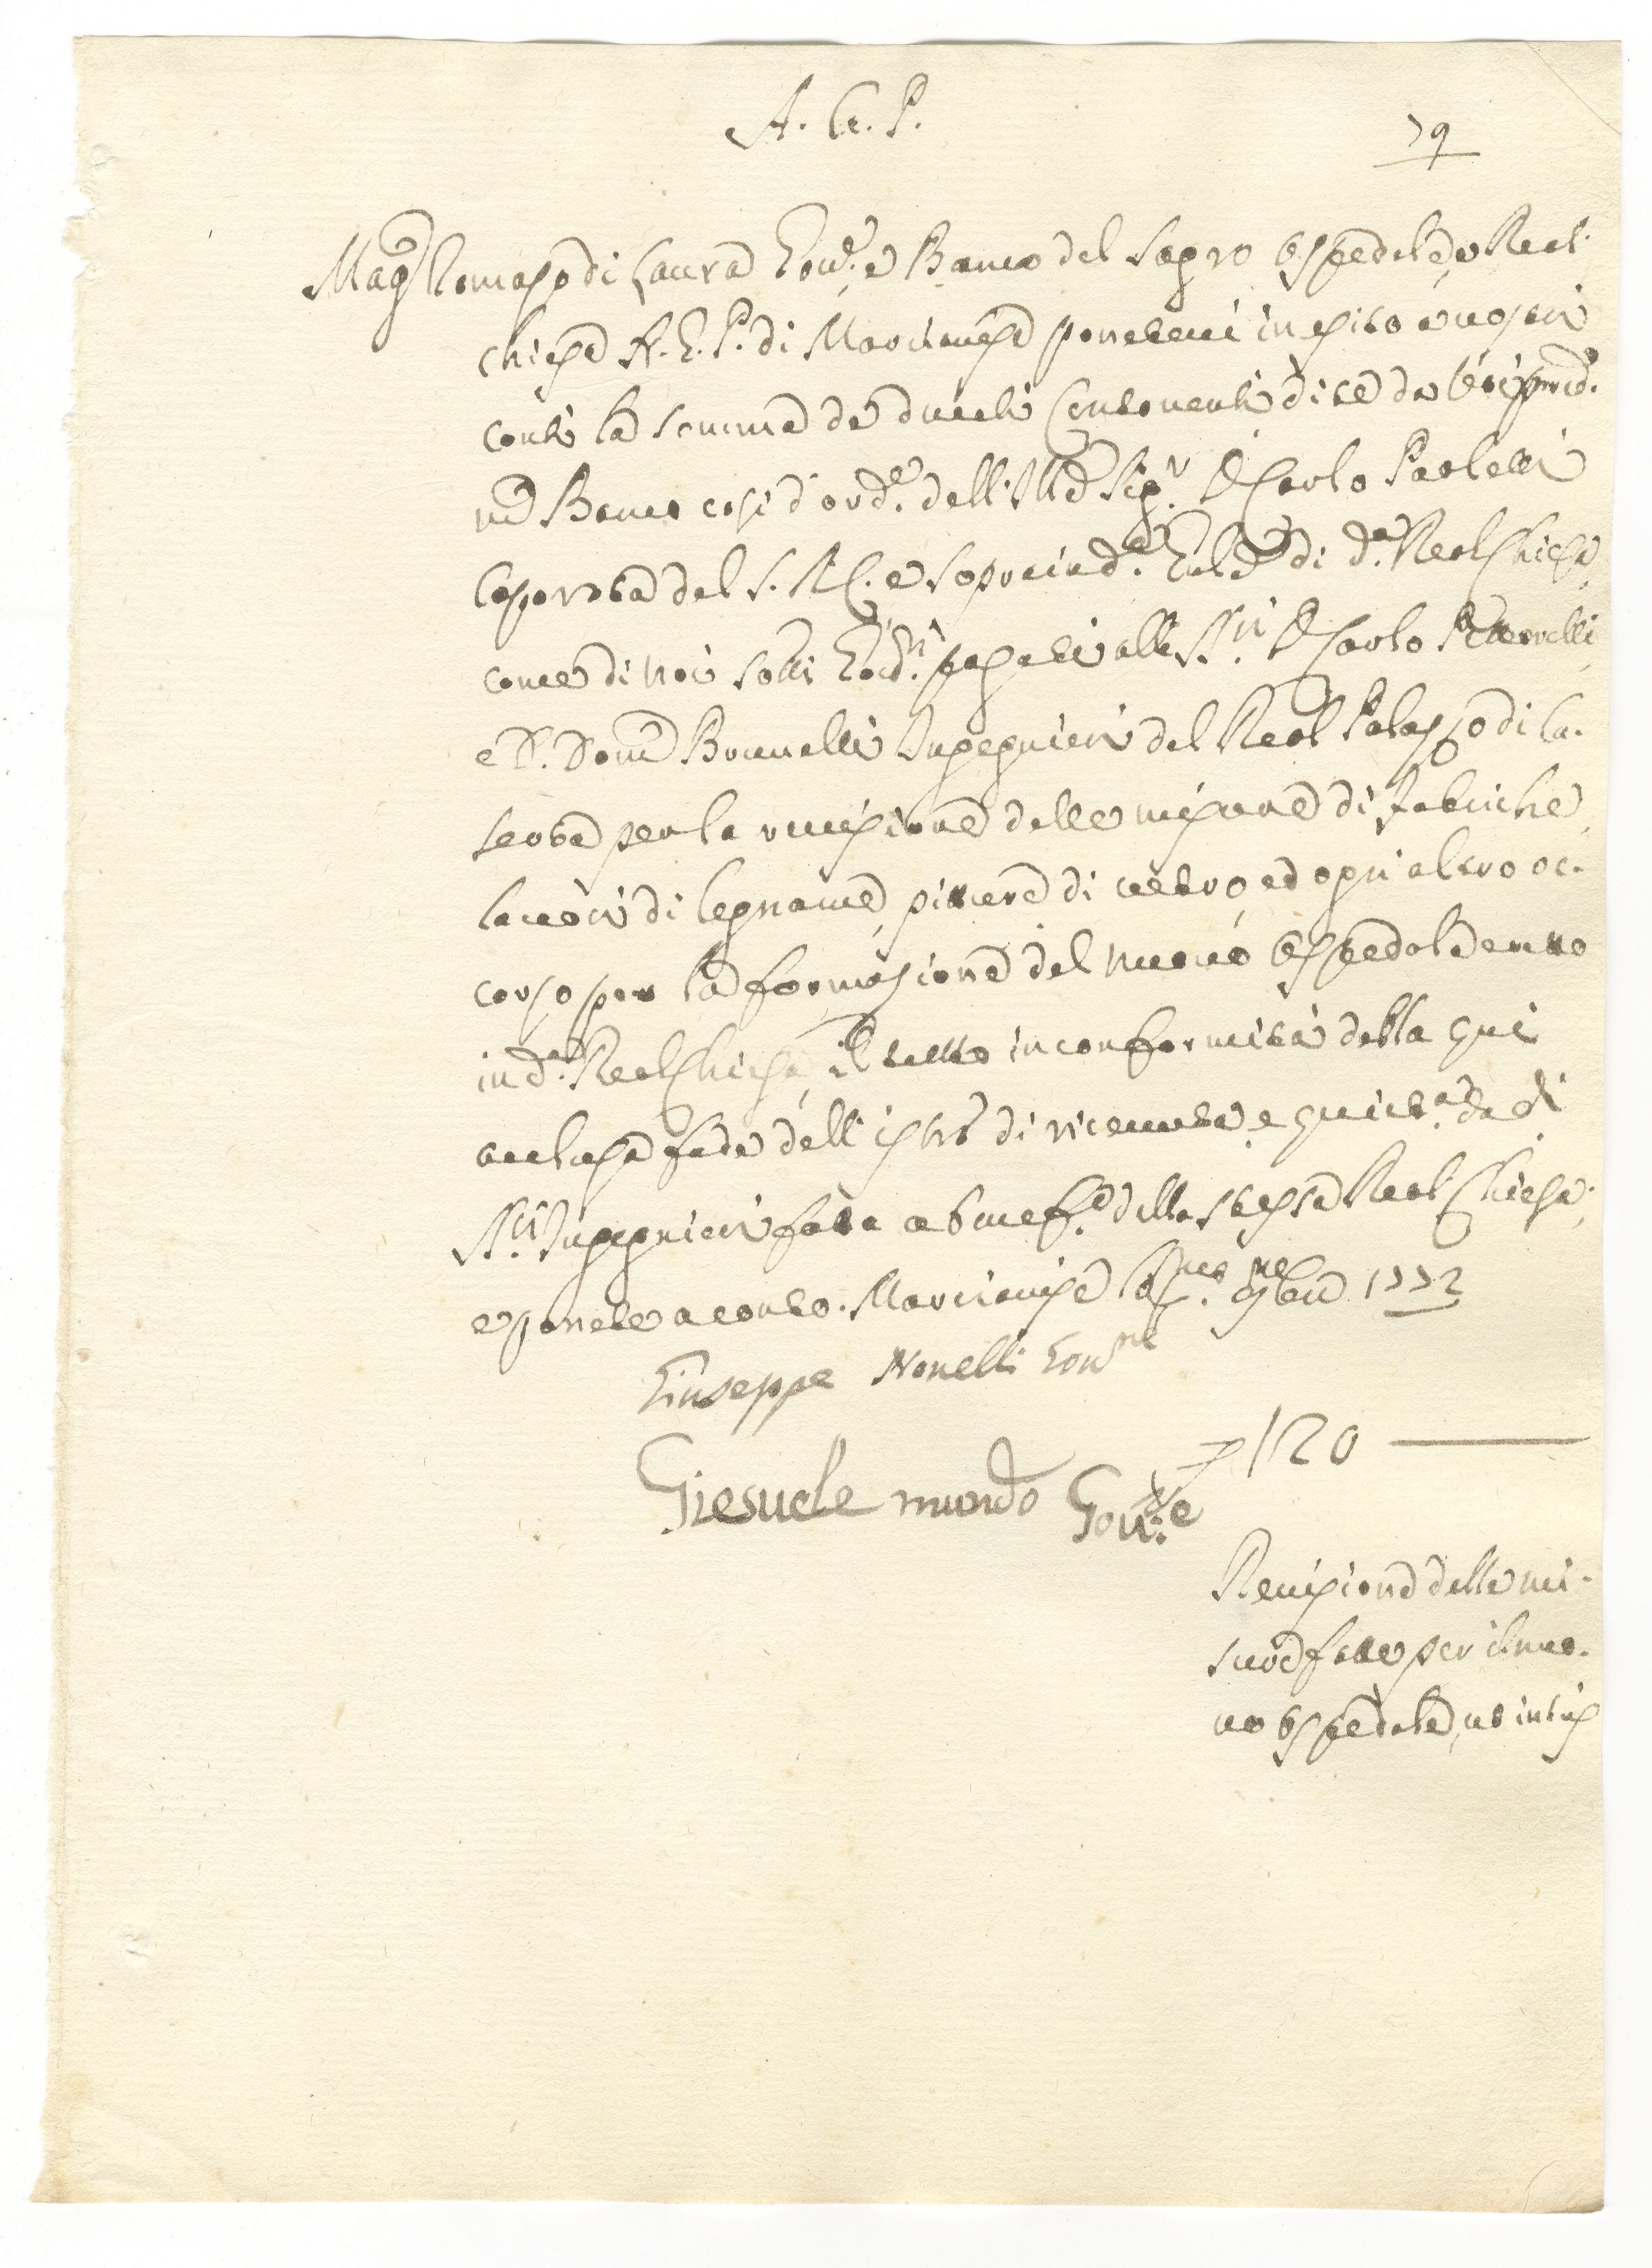 A. G. P.
79
Mag.co Tomaso di Laura Gov.re e Banco del Sagro Ospedale, e Real
Chiesa A. G. P. di Marcianise ponetevi in esito a vostri
conti la summa de ducati Centoventi di cd.
mo Banco così d'ord.e dell'Ill.e Sig.r D. Carlo Paoletti
Caporota del S. R. C. e Sopraind.e di d.a Real Chiesa,
come di noi sotti Gov.ri pagati alli SS.ri D. Carlo
e D. Dom.co Brunelli Ingegnieri del Real Palazzo di Ca-
serta per la revisione delle misure di fabriche,
lavori di legname, pitture di vetro, ed ogni altro oc-
corso per la formazione del nuovo Ospedale eretto
in d.a Real Chiesa, il tutto in conformità della qui
acclusa fede dell'istro di ricevuta, e quiet.a da d.i
SS.ri Ingegnieri fatta a benef.o della stessa Real Chiesa,
e ponete a conto. Marcianise 9bre 1772
Giuseppe Novelli Gov.re
Giesuele mundo Gov.re
120
Revisione delle mi-
sure fatte per il nuo-
vo Ospedale, ut intus